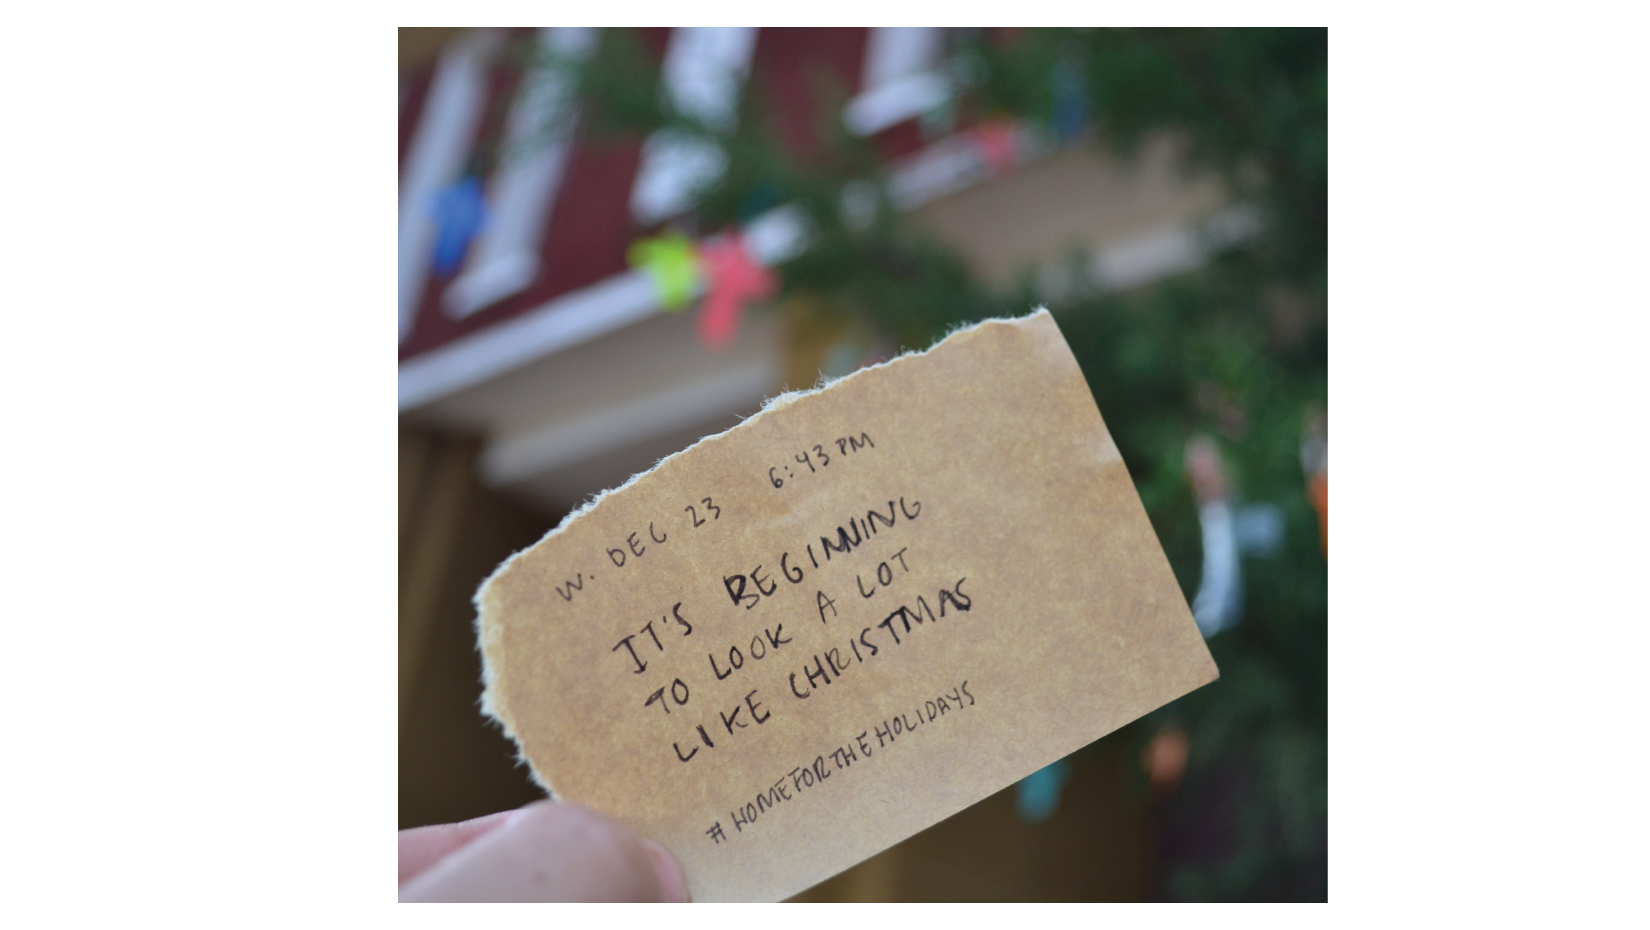 W. DEC 23 6:43 PM
IT'S BEGINNING
TO LOOK A LOT
LIKE CHRISTMAS
#HOMEFORTHEHOLIDAYS